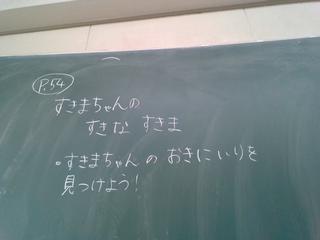 P.54
すきまちゃんの
すきな すきま
・すきまちゃんの おきにいりを
見つけよう!